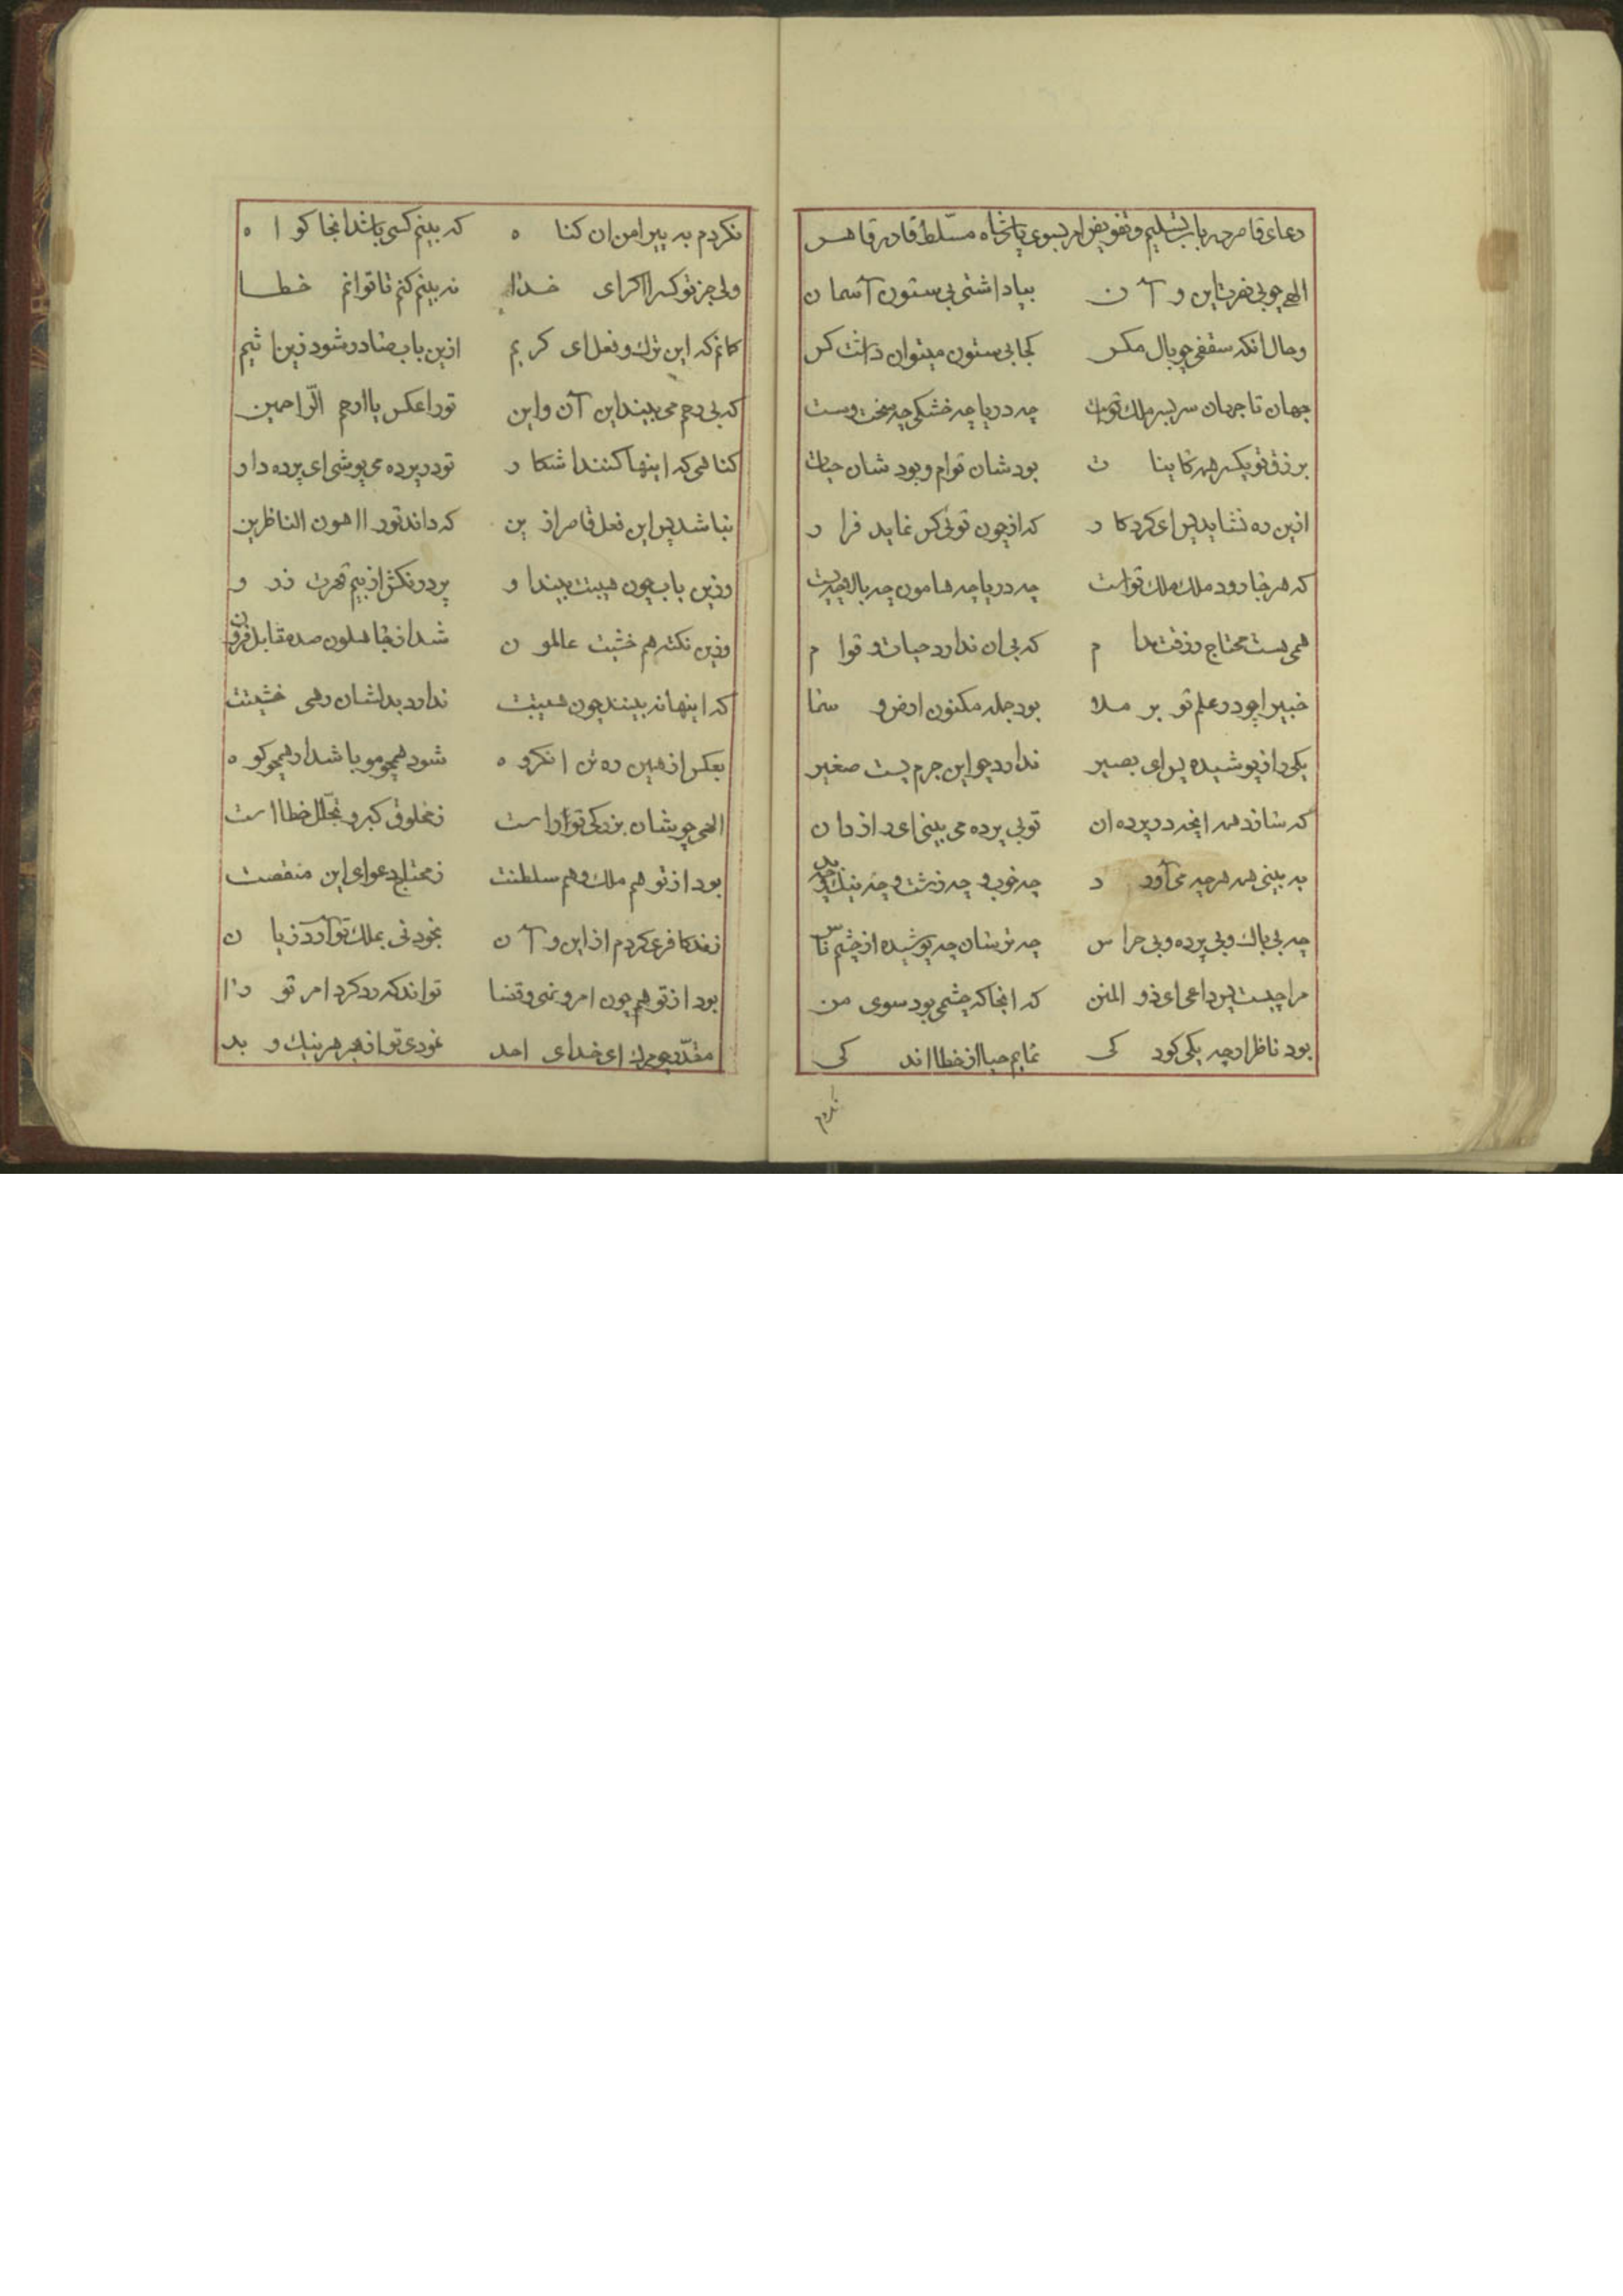 دعای قاصر در باب تسلیم و تفویض امر بسوی پادشاه مسلّط قادر قاهر
الهی چو بی ضرب این و آن بپا داشتی بی ستون آسمان
و حال آنکه سقفی چو بال مکس کجا بی ستون میتوان داشت کس
جهان تا جهان سر بسر ملک تست چه دریا چه خشکی چه سخت و سست
برزق تو یکسر همه کاینات بود شان قوام و بود شان حیات
ازین ره نشاید پس ای کردکار که از چون توئی کس نماید فرار
که هر جا رود ملک ملک تو است چه دریا چه هامون چه بالا چه پست
همی هست محتاج رزقت مدام که بی ان ندارد حیات و قوام
خبیرا چو در علم تو بر ملا بود جمله مکنون ارض و سما
یکی راز پوشیده پس ای بصیر ندارد چو این جرم پست صغیر
که سازد هر آنچه در پرده ان تو بی پرده می بینی ای رازدان
به بینی همه هرچه می آورد چه خوب و چه زشت و چه نیک و چه بد
چه بی باک و بی پرده و بی هراس چه ترسان چه پوشیده از چشم ناس
مرا چیست پس داعی ای ذو المنن که انجا که چشمی بود سوی من
بود ناظر ار چه یکی کودکی نمایم حیا از خطا اندکی
نکردم
نکردم به پیرامن ان کناه که بینم کسی باشد انجا کواه
ولی جز تو کس را اکر ای خدا نه بینم کنم تا توانم خطا
کانم که این ترک و فعل ای کریم ازین باب صادر شود زین اثیم
که بی رحم می بیند این آن و این تو را عکس یا ارحم الرّاحمین
کناهی که اینها کنند اشکار تو در پرده می پوشی ای پرده دار
نباشد پس این فعل قاصر از ین که داند تو را اهون الناظرین
وزین باب چون هیبت بیند او پرد رنکش از بیم قهرت ز رو
وزین نکته هم خشیت عالمون شد از جاهلون صد مقابل فزون
که اینها نه بینند چون هیبت ندارد بدلشان رهی خشیتت
بعکس از همین ره تن انکروه شود همچو مو باشد ار همچو کوه
الهی چو شان بزرکی تو را است ز مخلوق کبر و تجلّل خطا است
بود از تو هم ملک و هم سلطنت ز محتاج دعوای این منقصت
نفند کافر عکردم از این و آن بخود نی بملک تو آرد زیان
بود از تو هم چون امر و نهی و قضا تواند که رد کرد امر تو را
مقدّر چو مرک ای خدای احد نمودی تو از بهر هر نیک و بد